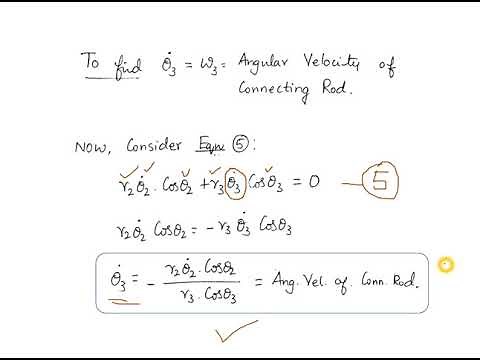 To find θ̇₃ = ω₃ = Angular Velocity of
Connecting Rod.
Now, Consider Eqn ⑤:
r₂θ̇₂. Cosθ₂ + r₃θ̇₃ Cosθ₃ = 0 — ⑤
r₂θ̇₂ Cosθ₂ = - r₃ θ̇₃ Cosθ₃
θ̇₃ = - r₂θ̇₂. Cosθ₂ / r₃. Cosθ₃ = Ang. Vel. of. Conn. Rod.